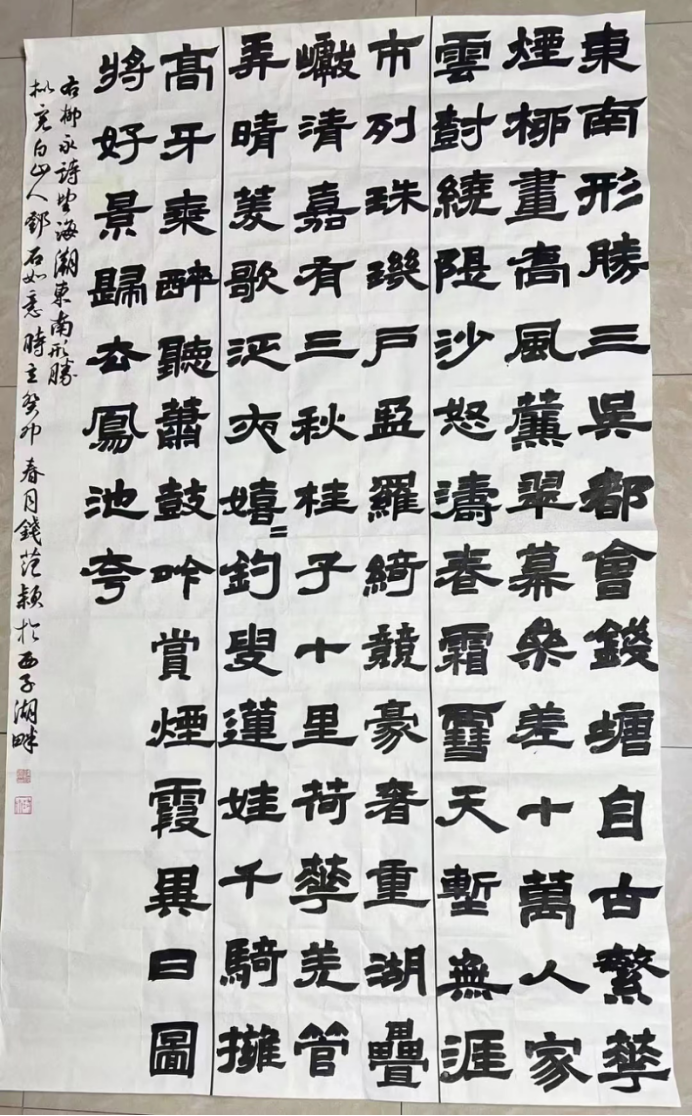 東南形勝三吳都會錢塘自古繁華
煙柳畫喬風薰翠幕參差十萬人家
雲尌繞隄沙怒濤卷霜雪天塹無涯
市列珠璣戶盈羅綺競豪奢重湖疊
巘清嘉有三秋桂子十里荷華羌管
弄晴菱歌泛夜嬉〻釣叟蓮娃千騎擁
高牙乘醉聽蕭鼓吟賞煙霞異日圖
將好景歸去鳳池夸
右柳永詩望海潮東南形勝
擬完白山人鄧石如意時在癸卯春月錢范穎於西子湖畔